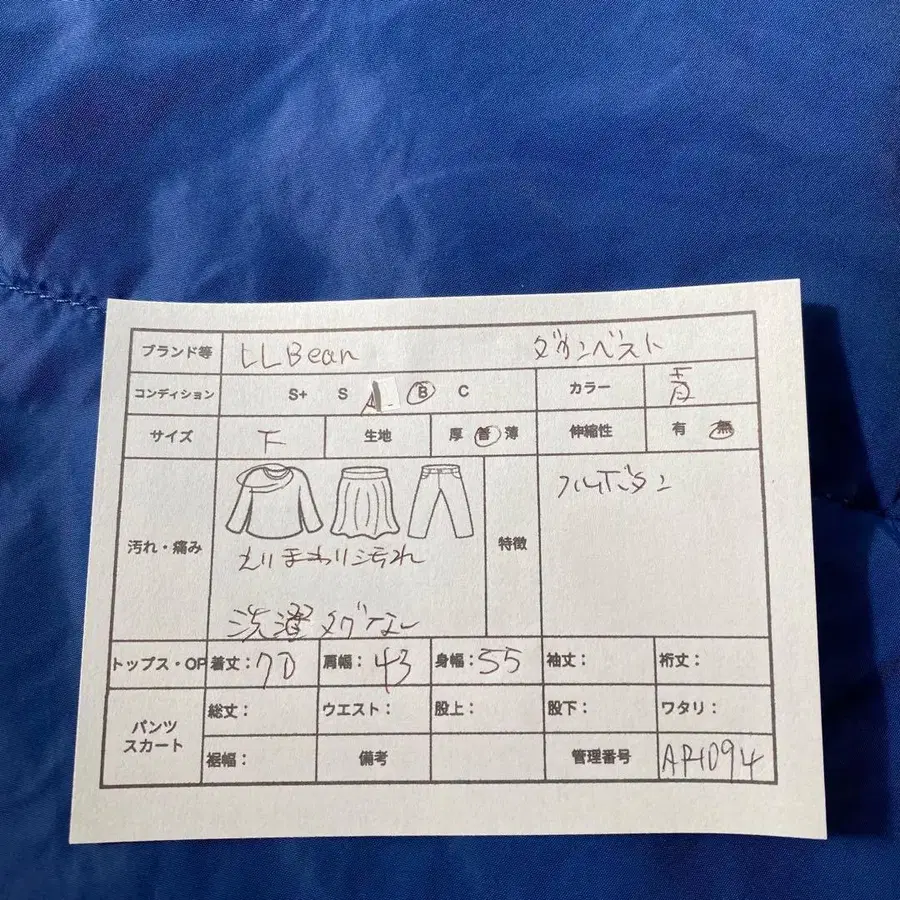 ブランド等 LLBean ダウンベスト
コンディション S+ S A B C カラー 青
サイズ 生地 厚 普 薄 伸縮性 有 無
汚れ・痛み 特徴 フルボタン
えりまわり汚れ
洗濯タグなし
トップス・OP 着丈: 70 肩幅: 43 身幅: 55 袖丈: 裄丈:
パンツ スカート 総丈: ウエスト: 股上: 股下: ワタリ:
裾幅: 備考 管理番号